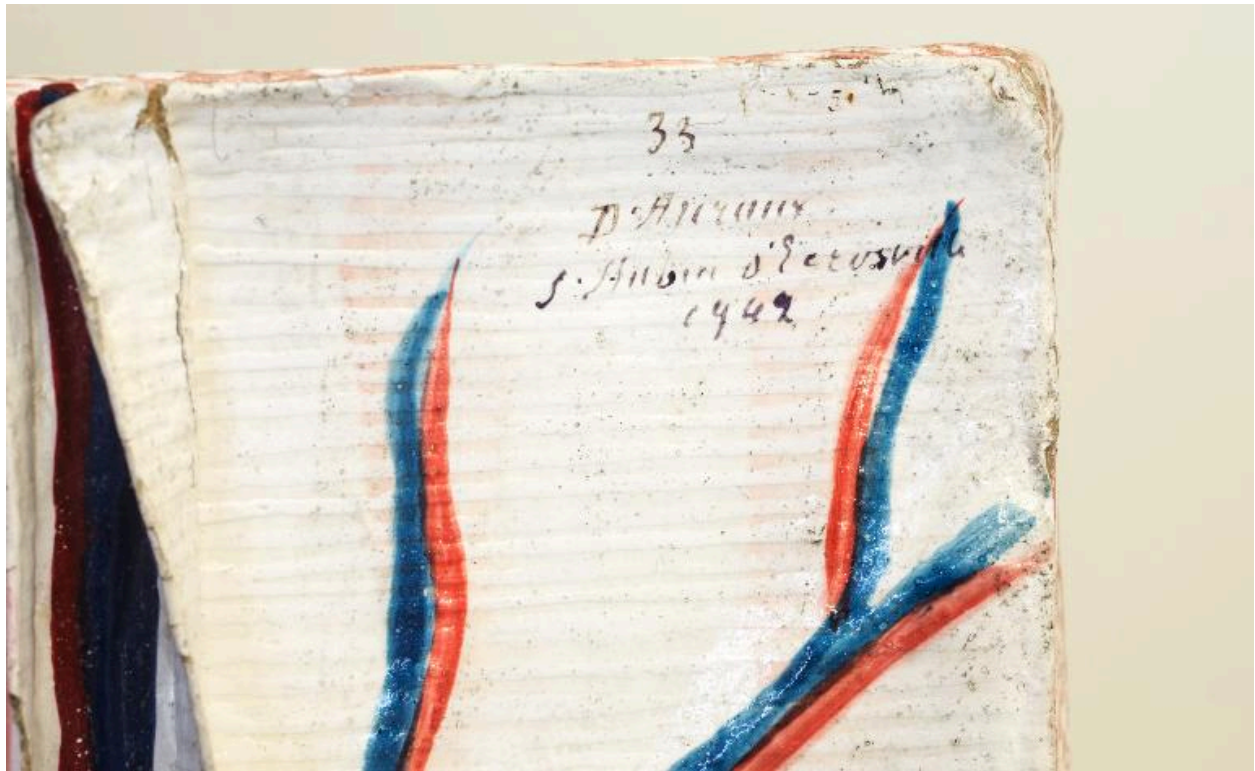 33
Dr Auzoux
S. Aubin d'Ecrosville
1942